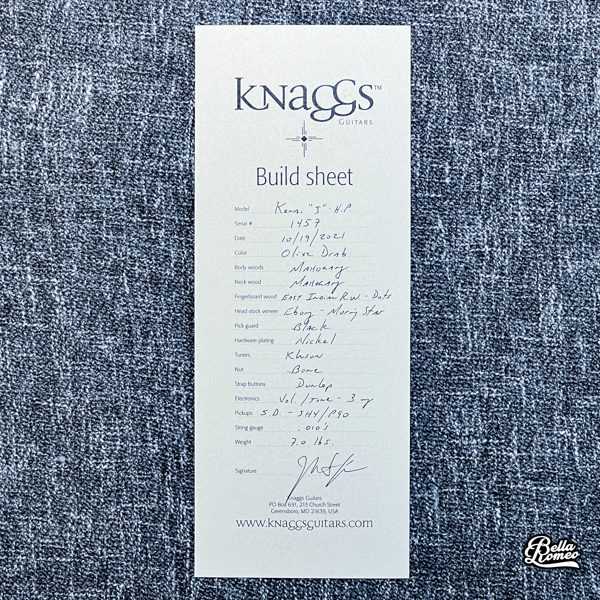 KNAGGS™
GUITARS
Build sheet
Model Kena "J" - H.P.
Serial # 1457
Date 10/19/2021
Color Olive Drab
Body woods Mahogany
Neck wood Mahogany
Fingerboard wood East Indian R.W. - Dots
Head stock veneer Ebony - Morning Star
Pick guard Black
Hardware plating Nickel
Tuners Kluson
Nut Bone
Strap buttons Dunlop
Electronics Vol./Tone - 3 way
Pickups S.D. - SH4/P90
String gauge .010's
Weight 7.0 lbs.
Signature
Knaggs Guitars
PO Box 691, 213 Church Street
Greensboro, MD 21639, USA
www.knaggsguitars.com
Bella
Romeo